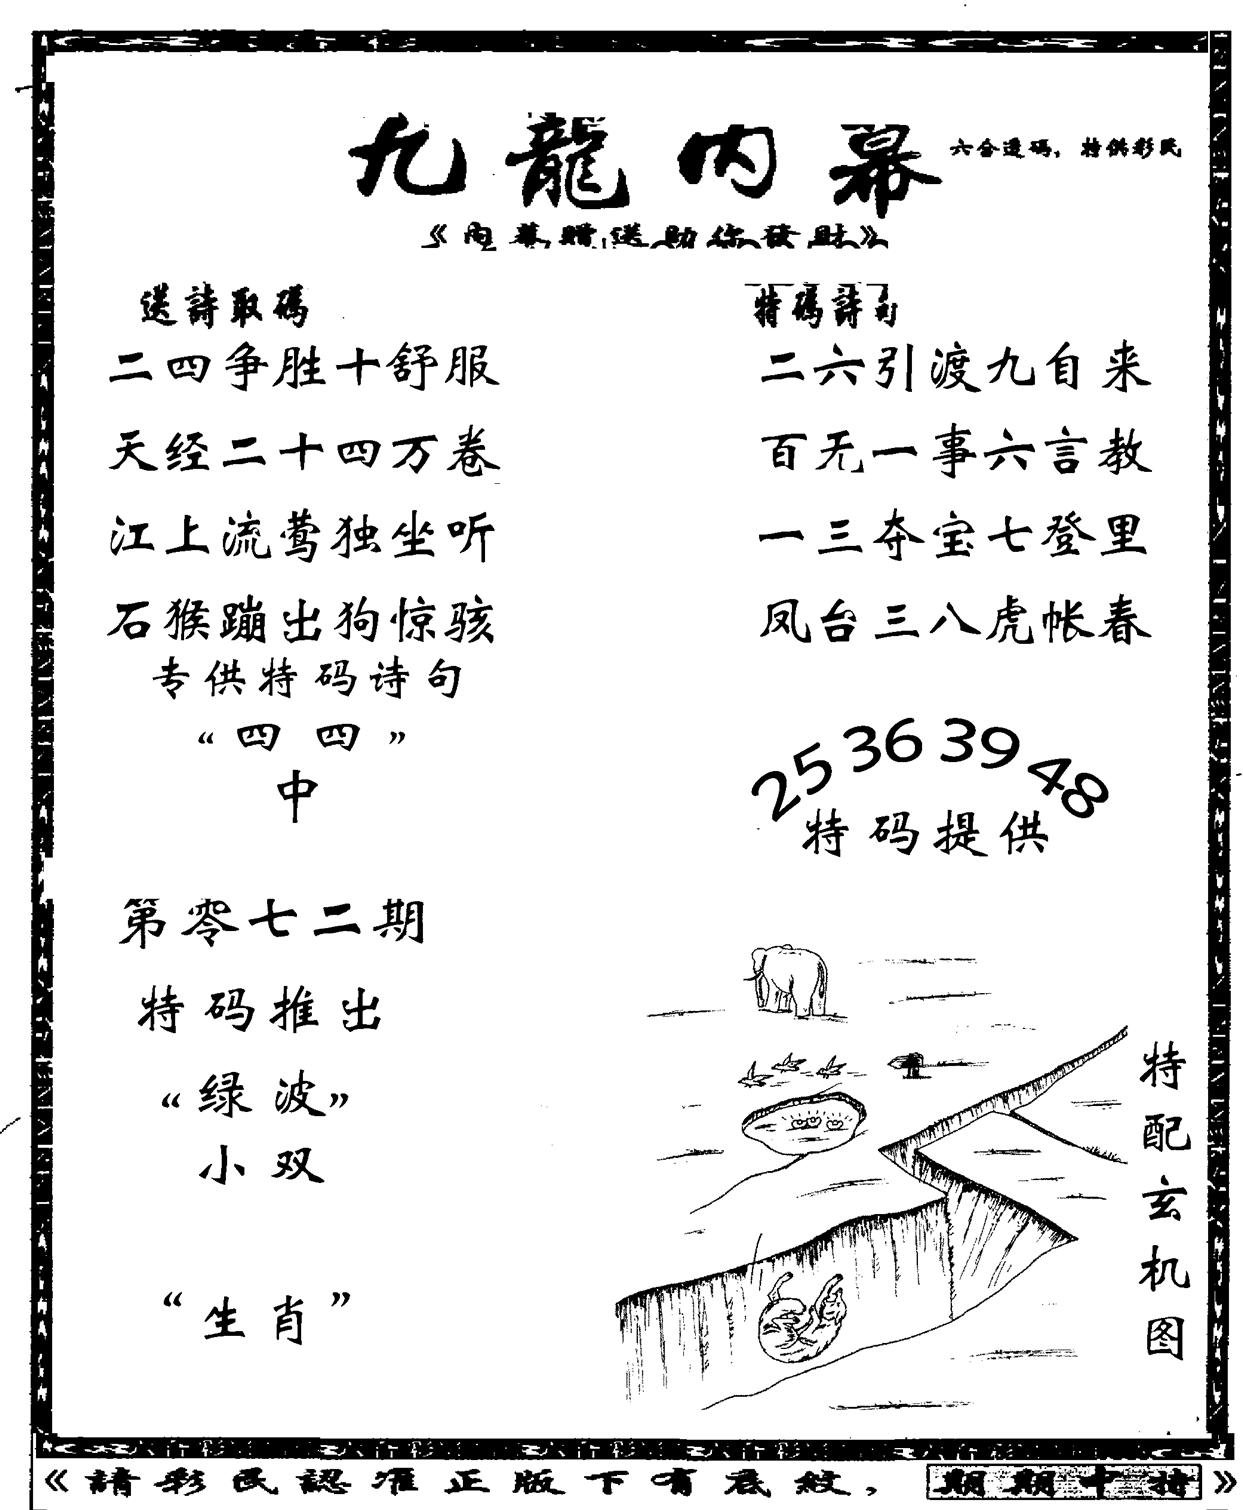 九龍内幕
六合透码，特供彩民
《內幕贈送助你發財》
送詩取碼
二四争胜十舒服
天经二十四万卷
江上流莺独坐听
石猴蹦出狗惊骇
专供特码诗句
“四四”
中
特碼詩句
二六引渡九自来
百无一事六言教
一三夺宝七登里
凤台三八虎帐春
25 36 39 48
特码提供
第零七二期
特码推出
“绿波”
小双
“生肖”
特配玄机图
《請彩民認准正版下有底紋，期期中特》